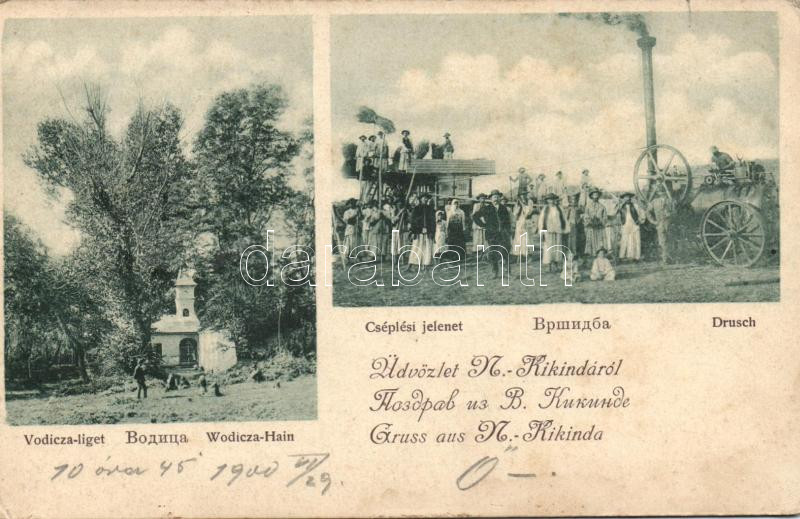 Cséplési jelenet Вршидба Drusch
Üdvözlet N.-Kikindáról
Поздрав из В. Кикинде
Gruss aus N.-Kikinda
Vodicza-liget Водица Wodicza-Hain
10 óra 45 1900 VI/29
darabanth